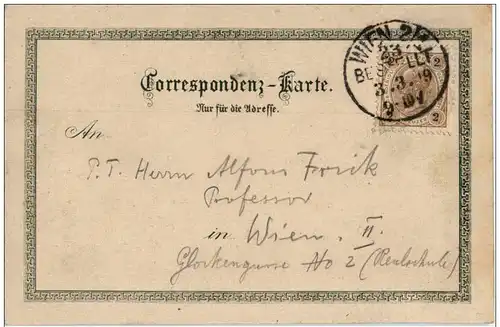 WIEN 2/
BESTELLT
3. 3. 9
2
2
Correspondenz-Karte.
Nur für die Adresse.
An
P.T. Herrn Alfons
Professor
in Wien. II.
Glockengasse No 2 (Realschule)